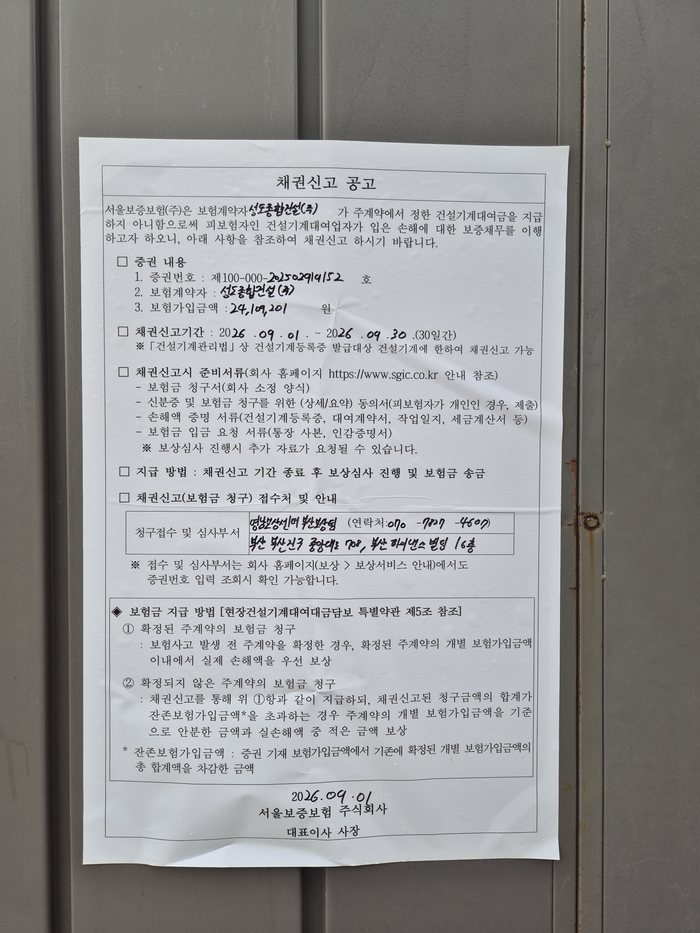 채권신고 공고
서울보증보험(주)은 보험계약자 성도종합건설(주) 가 주계약에서 정한 건설기계대여금을 지급
하지 아니함으로써 피보험자인 건설기계대여업자가 입은 손해에 대한 보증채무를 이행
하고자 하오니, 아래 사항을 참조하여 채권신고 하시기 바랍니다.
□ 증권 내용
1. 증권번호 : 제100-000-202502914152 호
2. 보험계약자 : 성도종합건설(주)
3. 보험가입금액 : 24,109,201 원
□ 채권신고기간 : 2026 .09 .01 . ~ 2026 .09 .30 .(30일간)
※「건설기계관리법」상 건설기계등록증 발급대상 건설기계에 한하여 채권신고 가능
□ 채권신고시 준비서류(회사 홈페이지 https://www.sgic.co.kr 안내 참조)
- 보험금 청구서(회사 소정 양식)
- 신분증 및 보험금 청구를 위한 (상세/요약) 동의서(피보험자가 개인인 경우, 제출)
- 손해액 증명 서류(건설기계등록증, 대여계약서, 작업일지, 세금계산서 등)
- 보험금 입금 요청 서류(통장 사본, 인감증명서)
※ 보상심사 진행시 추가 자료가 요청될 수 있습니다.
□ 지급 방법 : 채권신고 기간 종료 후 보상심사 진행 및 보험금 송금
□ 채권신고(보험금 청구) 접수처 및 안내
청구접수 및 심사부서
영남보상센터 부산보상팀 (연락처:070 -7827 -4607)
부산 부산진구 중앙대로 708, 부산 파이낸스 빌딩 16층
※ 접수 및 심사부서는 회사 홈페이지(보상 > 보상서비스 안내)에서도
증권번호 입력 조회시 확인 가능합니다.
◈ 보험금 지급 방법 [현장건설기계대여대금담보 특별약관 제5조 참조]
① 확정된 주계약의 보험금 청구
: 보험사고 발생 전 주계약을 확정한 경우, 확정된 주계약의 개별 보험가입금액
이내에서 실제 손해액을 우선 보상
② 확정되지 않은 주계약의 보험금 청구
: 채권신고를 통해 위 ①항과 같이 지급하되, 채권신고된 청구금액의 합계가
잔존보험가입금액*을 초과하는 경우 주계약의 개별 보험가입금액을 기준
으로 안분한 금액과 실손해액 중 적은 금액 보상
* 잔존보험가입금액 : 증권 기재 보험가입금액에서 기존에 확정된 개별 보험가입금액의
총 합계액을 차감한 금액
2026.09.01
서울보증보험 주식회사
대표이사 사장